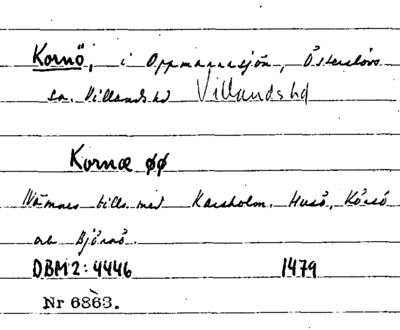 Kornö, i Oppmannasjön, Österslövs
sn. Villands hd Villands hd
Kornæ øø
Nämnes tills. med Karsholm, Husö, Körsö
och Björnö.
DBM 2: 4446 1479
Nr 6863.